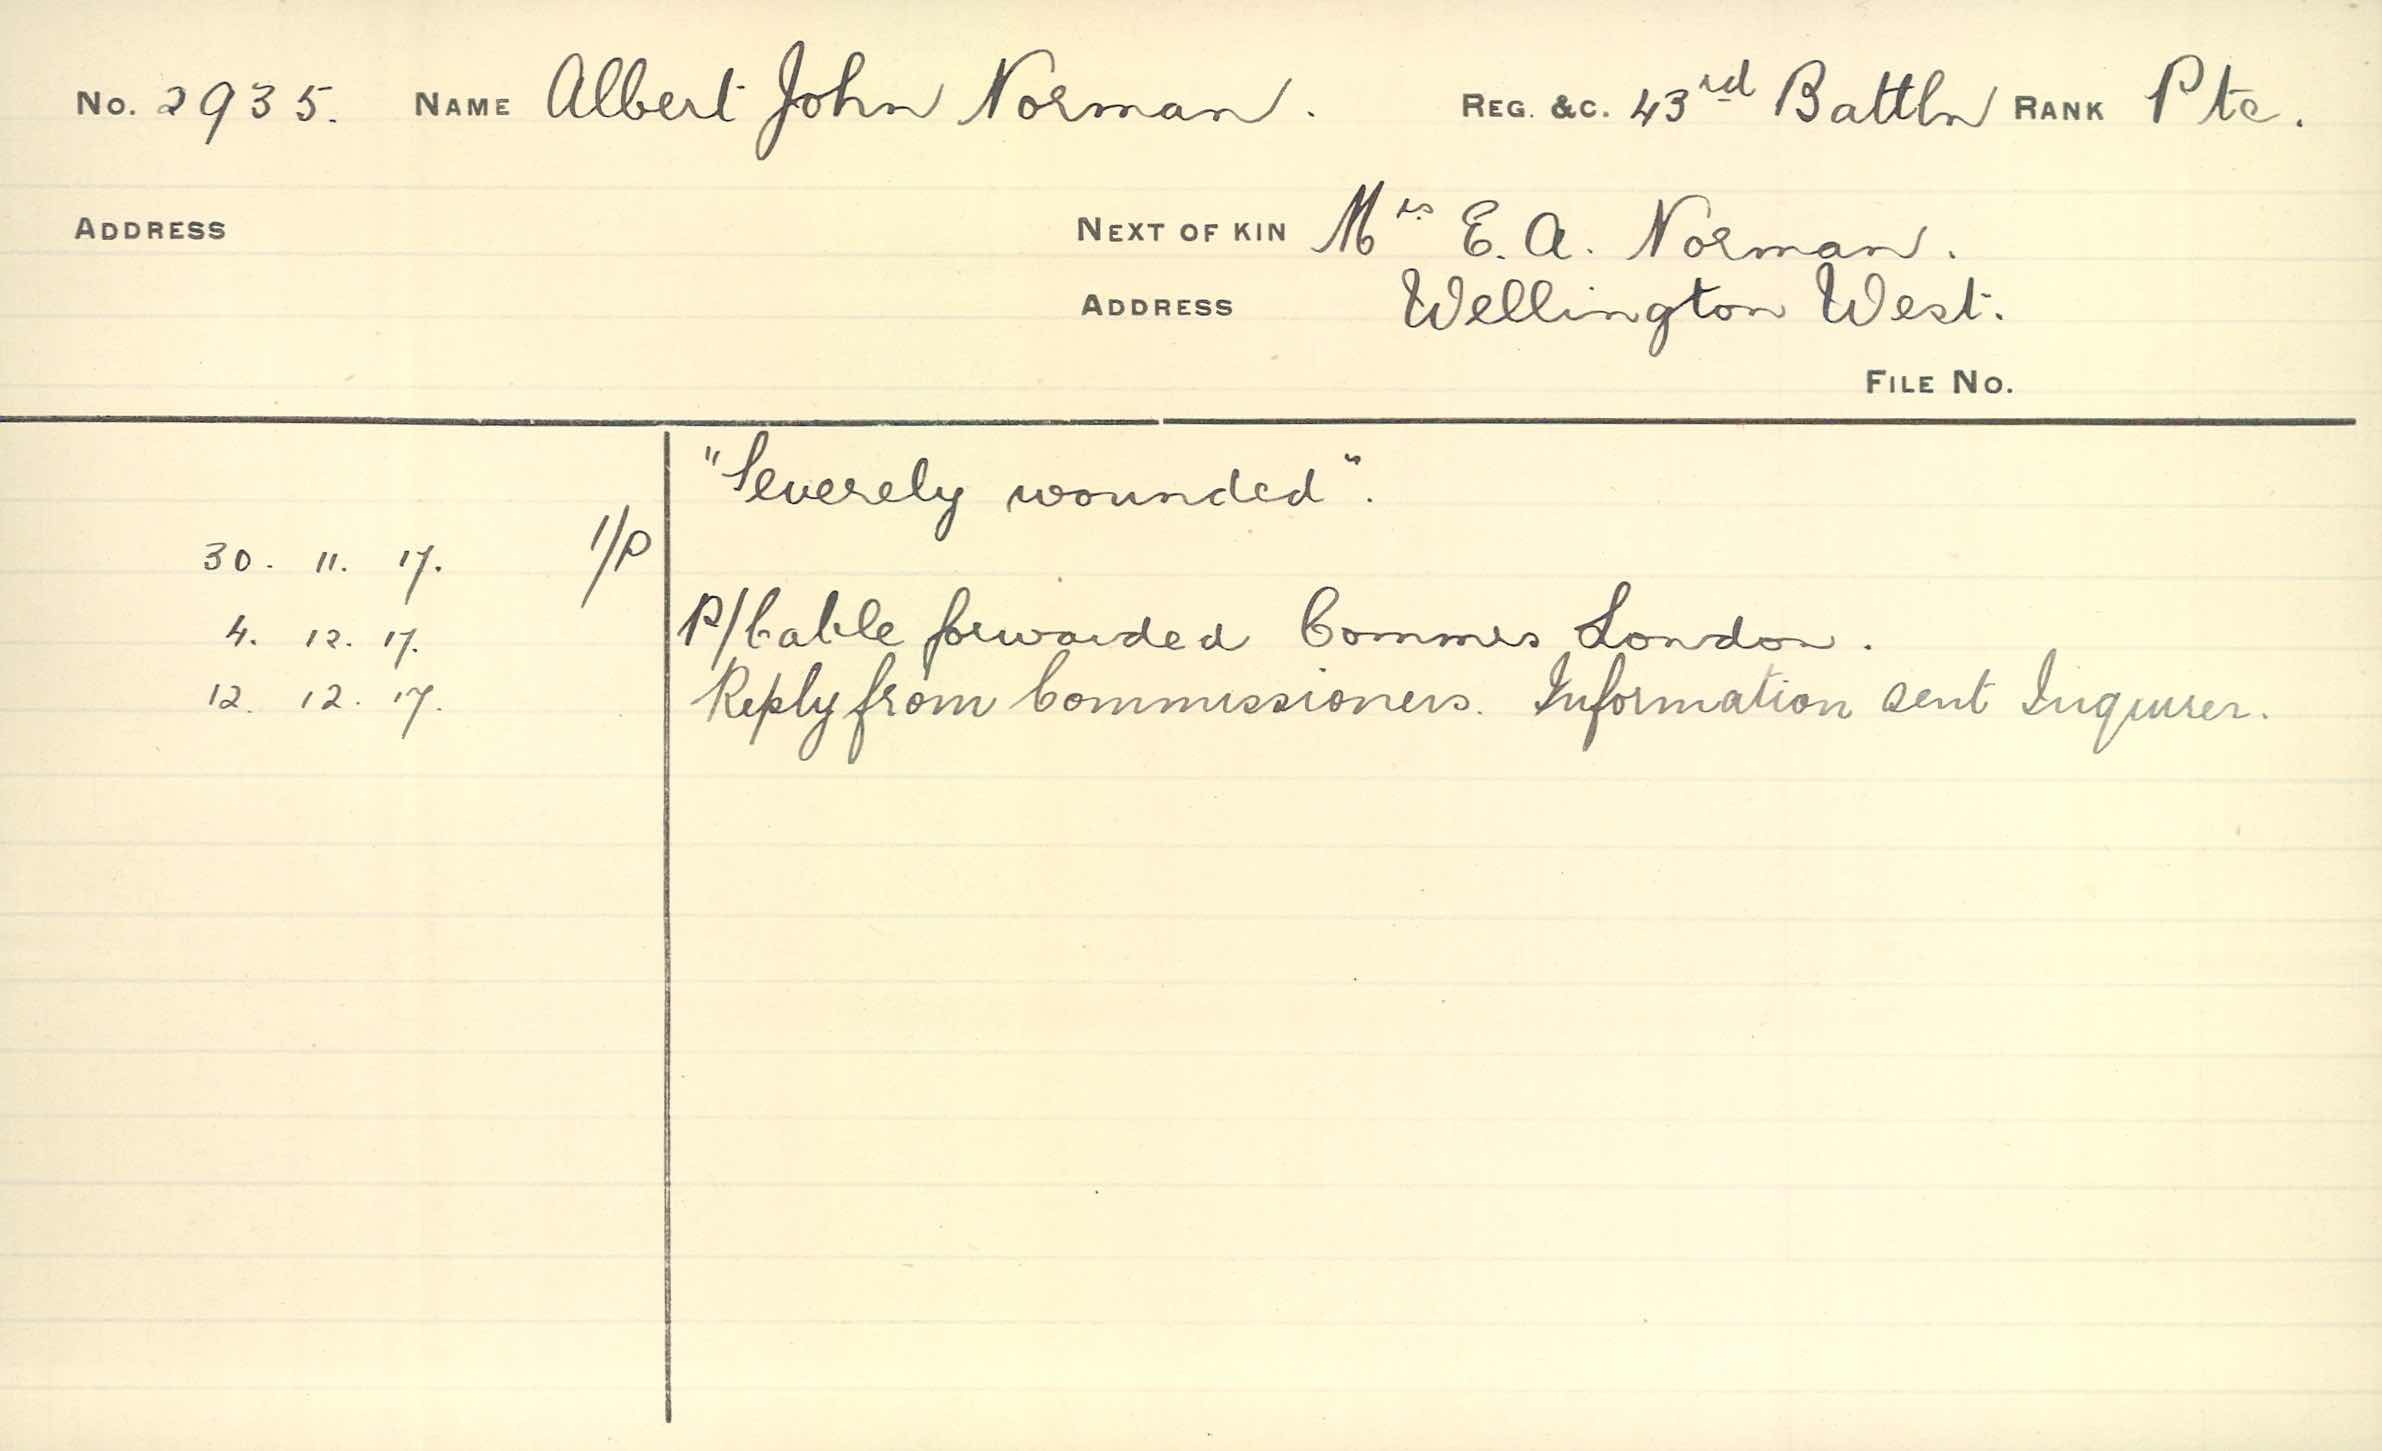 No. 2935. NAME Albert John Norman. REG. &C. 43rd Battln RANK Pte.
ADDRESS NEXT OF KIN Mrs E. A. Norman.
ADDRESS Wellington West.
FILE No.
"Severely wounded".
30. 11. 17. 1/P
4. 12. 17. P/Cable forwarded Commrs London.
12. 12. 17. Reply from Commissioners. Information sent Inquirer.